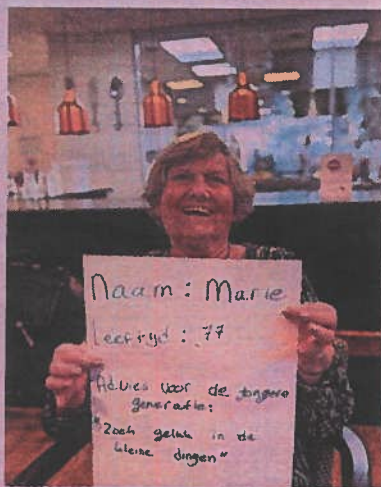 Naam: Marie
Leeftijd: 77
Advies voor de jongere
generatie:
"Zoek geluk in de
kleine dingen"